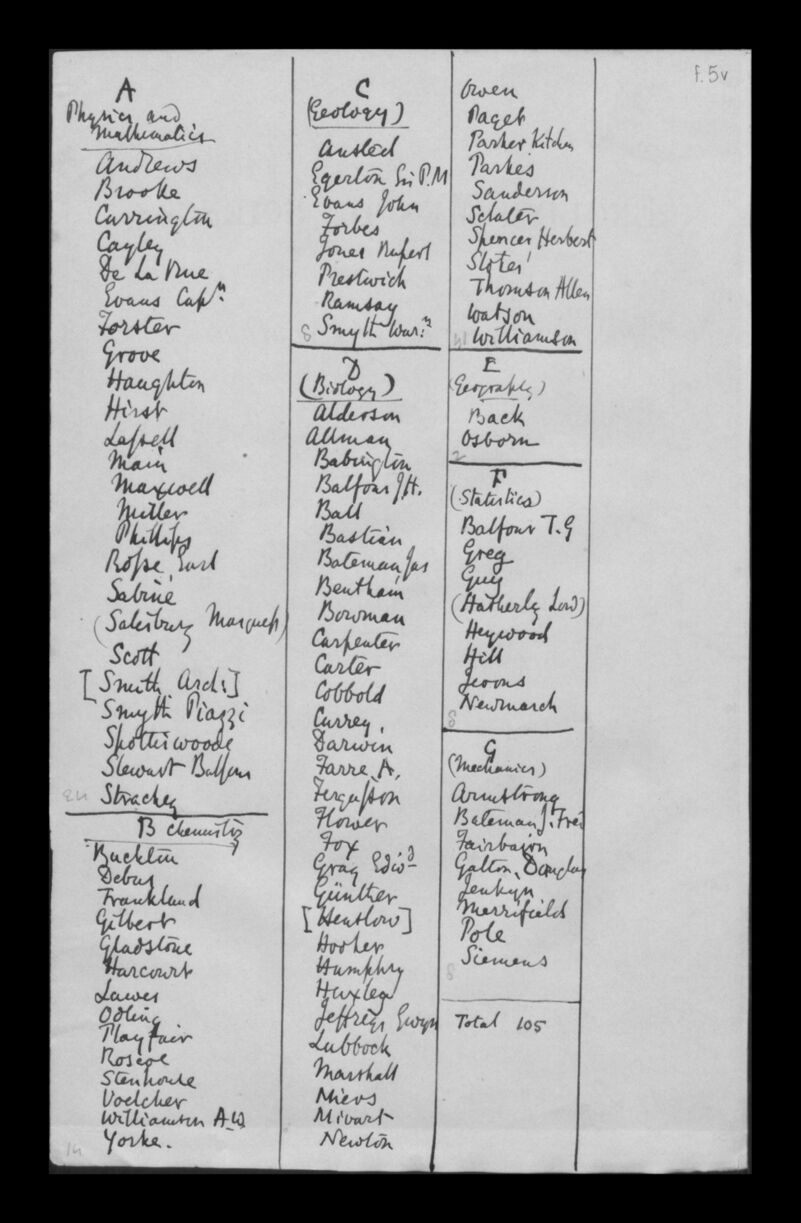 f. 5v
A
Physics and
Mathematics
Andrews
Brooke
Carrington
Cayley
De La Rue
Evans Capn.
Forster
Grove
Haughton
Hirst
Lassell
Main
Maxwell
Miller
Phillips
Rosse, Earl
Sabine
(Salisbury Marquess)
Scott
[Smith Arch:]
Smyth Piazzi
Spottiswoode
Stewart Balfour
Strachey
24
B Chemistry
Buckton
Debus
Frankland
Gilbert
Gladstone
Harcourt
Lawes
Odling
Playfair
Roscoe
Stenhouse
Voelcker
Williamson A W
Yorke.
14
C
(Geology)
Ansted
Egerton Sir P.M
Evans John
Forbes
Jones Rupert
Prestwich
Ramsay
8 Smyth War:n
D
(Biology)
Alderson
Allman
Babington
Balfour J H.
Ball
Bastian
Bateman Jas
Bentham
Bowman
Carpenter
Carter
Cobbold
Currey,
Darwin
Farre, A.
Fergusson
Flower
Fox
Gray Edwd
Günther
[Henslow]
Hooker
Humphry
Huxley
Jeffreys Gwyn
Lubbock
Marshall
Miers
Mivart
Newton
Owen
Paget
Parker Kitchen
Parkes
Sanderson
Sclater
Spencer Herbert
Thomson Allen
Watson
41 Williamson
E
(Geography)
Back
Osborn
2
F
(Statistics)
Balfour T. G
Greg
Guy
(Hatherly Lord)
Heywood
Hill
Jevons
Newmarch
8
G
(Mechanics)
Armstrong
Bateman J. Fred
Fairbairn
Galton, Douglas
Jenkyn
Merrifield
Pole
Siemens
8
Total 105